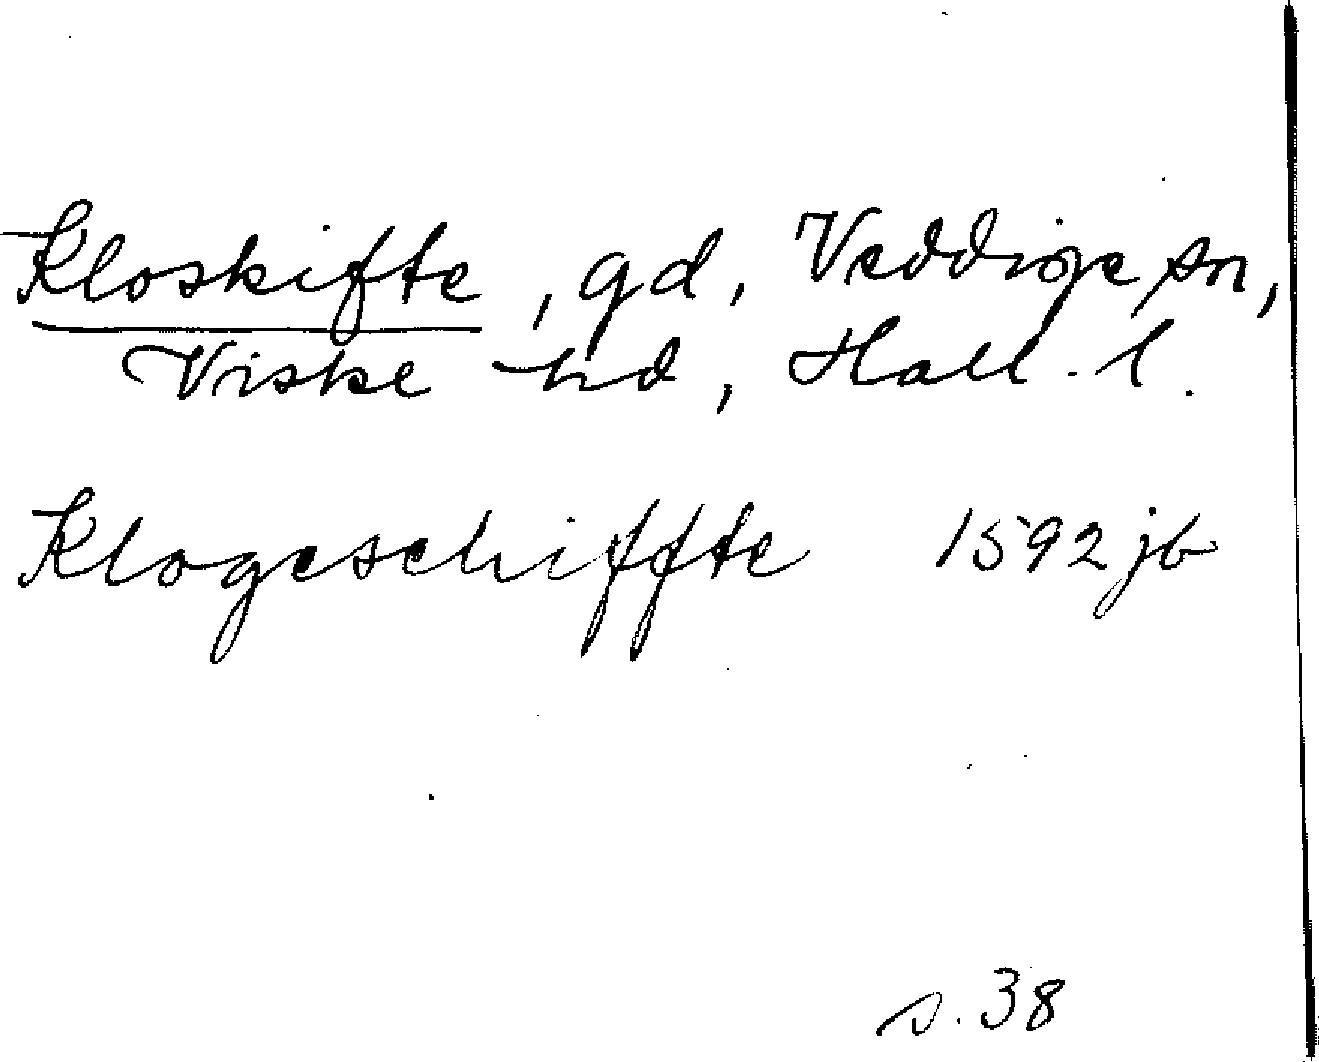 Kloskifte, gd, Veddige sn,
Viske hd, Hall. l.
Klogeschiffte 1592 jb
s. 38